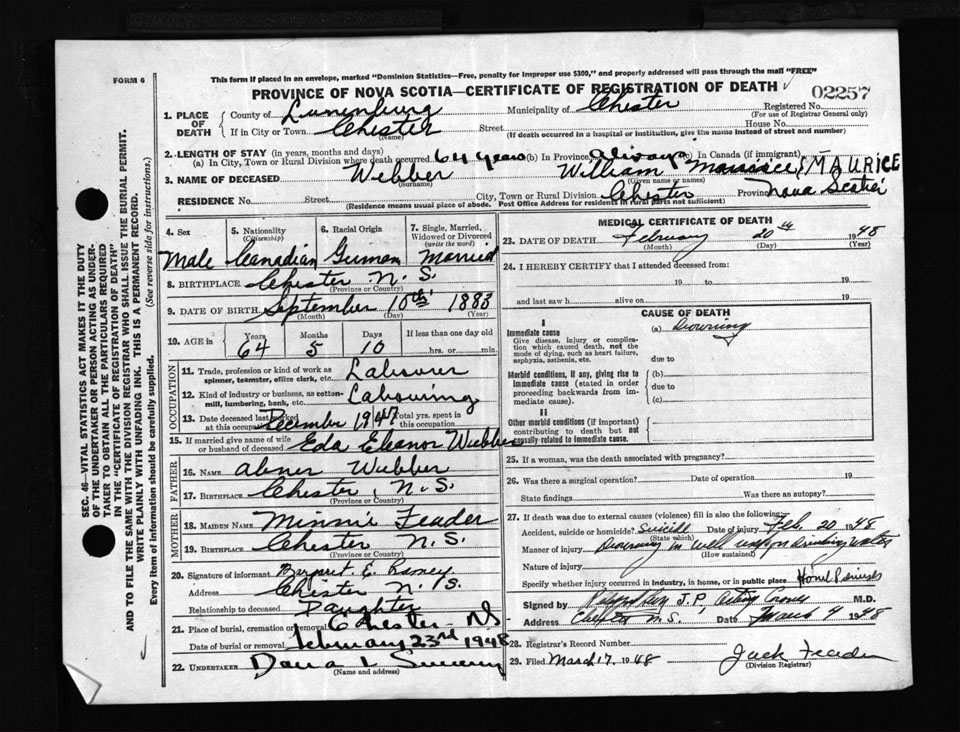 This form if placed in an envelope, marked "Dominion Statistics—Free, penalty for improper use $300," and properly addressed will pass through the mail "FREE"
FORM 6
PROVINCE OF NOVA SCOTIA—CERTIFICATE OF REGISTRATION OF DEATH
02257
1. PLACE OF DEATH
County of Lunenburg Municipality of Chester Registered No.
(For use of Registrar General only)
If in City or Town Chester Street House No.
(Name) (If death occurred in a hospital or institution, give the name instead of street and number)
2. LENGTH OF STAY (in years, months and days)
(a) In City, Town or Rural Division where death occurred 64 years (b) In Province always (c) In Canada (if immigrant)
3. NAME OF DECEASED Webber William MAURICE
(Surname) (Given name or names)
RESIDENCE No. Street City, Town or Rural Division Chester Province Nova Scotia
(Residence means usual place of abode. Post Office Address for residents in rural parts not sufficient)
SEC. 46—VITAL STATISTICS ACT MAKES IT THE DUTY
OF THE UNDERTAKER OR PERSON ACTING AS UNDER-
TAKER TO OBTAIN ALL THE PARTICULARS REQUIRED
IN THE "CERTIFICATE OF REGISTRATION OF DEATH"
AND TO FILE THE SAME WITH THE DIVISION REGISTRAR WHO SHALL ISSUE THE BURIAL PERMIT.
WRITE PLAINLY WITH UNFADING INK. THIS IS A PERMANENT RECORD.
Every item of information should be carefully supplied. (See reverse side for instructions.)
4. Sex 5. Nationality (Citizenship) 6. Racial Origin 7. Single, Married, Widowed or Divorced (write the word)
Male Canadian German Married
8. BIRTHPLACE Chester N.S.
(Province or Country)
9. DATE OF BIRTH September 10th 1883
(Month) (Day) (Year)
10. AGE in Years Months Days If less than one day old
64 5 10 hrs. or min.
OCCUPATION
11. Trade, profession or kind of work as spinner, teamster, office clerk, etc. Labourer
12. Kind of industry or business, as cotton-mill, lumbering, bank, etc. Labouring
13. Date deceased last worked at this occupation December 1947 Total yrs. spent in this occupation
15. If married give name of wife or husband of deceased Eda Eleanor Webber
FATHER
16. NAME Abner Webber
17. BIRTHPLACE Chester N.S.
(Province or Country)
MOTHER
18. MAIDEN NAME Minnie Feader
19. BIRTHPLACE Chester N.S.
(Province or Country)
20. Signature of informant Margaret E.
Address Chester N.S.
Relationship to deceased Daughter
21. Place of burial, cremation or removal Chester NS
Date of burial or removal February 23rd 1948
22. UNDERTAKER Dana L
(Name and address)
MEDICAL CERTIFICATE OF DEATH
23. DATE OF DEATH February 20th 1948
(Month) (Day) (Year)
24. I HEREBY CERTIFY that I attended deceased from:
19 to 19
and last saw h alive on 19
CAUSE OF DEATH
I
Immediate cause (a) Drowning
Give disease, injury or complication which caused death, not the mode of dying, such as heart failure, asphyxia, asthenia, etc.
due to
Morbid conditions, if any, giving rise to immediate cause (stated in order proceeding backwards from immediate cause).
(b)
due to
(c)
II
Other morbid conditions (if important) contributing to death but not causally related to immediate cause.
25. If a woman, was the death associated with pregnancy?
26. Was there a surgical operation? Date of operation 19
State findings Was there an autopsy?
27. If death was due to external causes (violence) fill in also the following:
Accident, suicide or homicide? Suicide Date of injury Feb. 20 1948
(State which)
Manner of injury Drowning in well used for drinking water
(How sustained)
Nature of injury
Specify whether injury occurred in industry, in home, or in public place Home
Signed by J.P. Acting M.D.
Address Chester N.S. Date March 4 1948
28. Registrar's Record Number
29. Filed March 17 1948 Jack Feader
(Division Registrar)